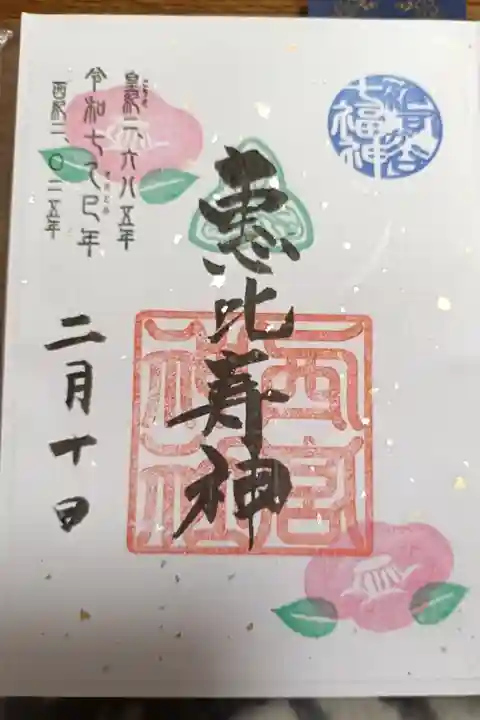 七福神
恵比寿神
西宮
神社
皇紀二、六八五年
令和七乙巳年
西暦二、〇二五年
二月十日